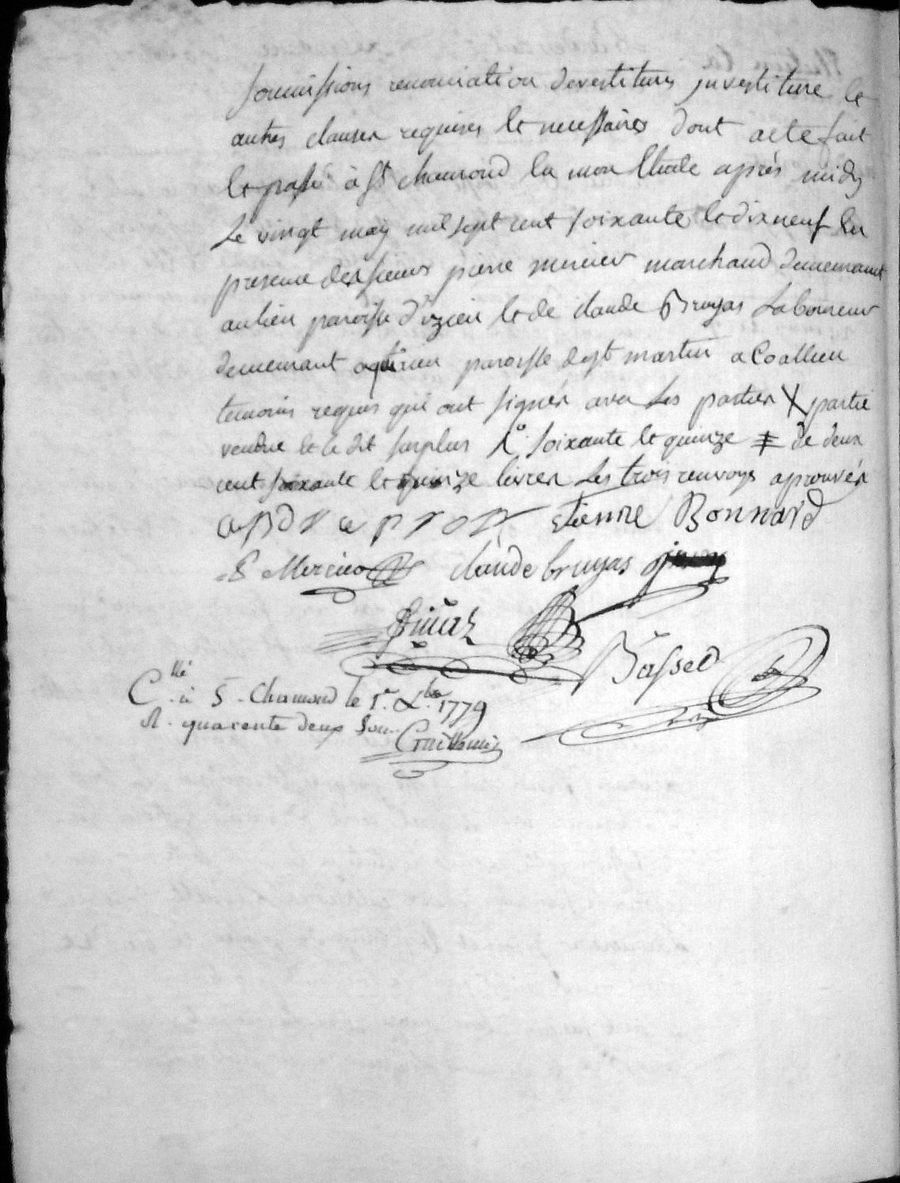 soumissions renonciation devestiture investiture et
autres clauses requises et necessaires dont acte fait
et passé à St chamond en mon Etude après midy
Le vingt may mil sept cent soixante et dix neuf En
presence des sieurs pierre mercier marchand demeurant
au lieu paroisse d'izieu et de claude Bruyas Laboureur
demeurant paroisse de st martin a Coallieu
temoins requis qui ont signés avec les parties X partie
vendue et le dit surplus soixante et quinze ǂ de deux
cent soixante et quinze livres Les trois renvoys aprouvés
Etienne Bonnard
P Mercier claude bruyas
finaz
Basset
C.llé à S. Chamond le 1er 1779
R. quarente deux sous
Guillemin